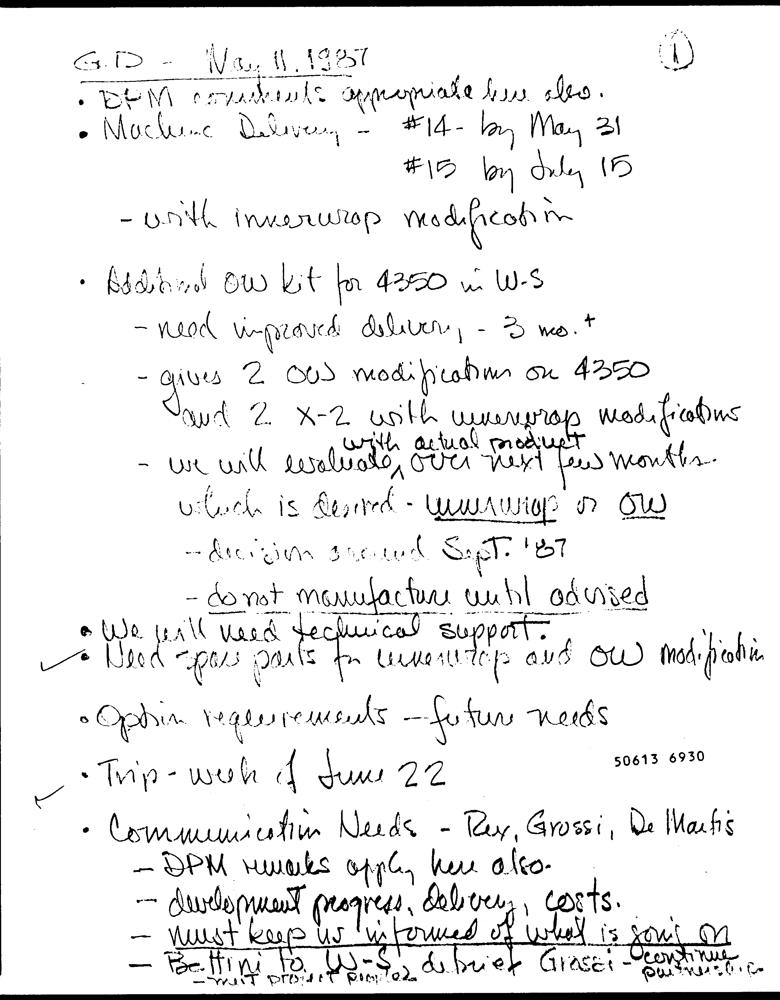 G.D - May 11, 1987
①
• DPM comments appropriate here also.
• Machine Delivery - #14 - by May 31
#15 by July 15
- with innerwrap modification
• Additional OW kit for 4350 in W-S
- need improved delivery - 3 mo.+
- gives 2 OW modifications on 4350
and 2 X-2 with innerwrap modifications
with actual product
- we will evaluate ^ over next few months.
which is desired - innerwrap or OW
- decision around Sept. '87
- do not manufacture until advised
• We will need technical support.
✓ • Need spare parts for innerwrap and OW modification
• Option requirements - future needs
50613 6930
✓ • Trip - week of June 22
• Communication Needs - Rex, Grossi, De Martis
- DPM remarks apply here also.
- development progress, delivery, costs.
- must keep us informed of what is going on
- Bettini to W-S, debrief Grossi - continue
partnership
- meet project people